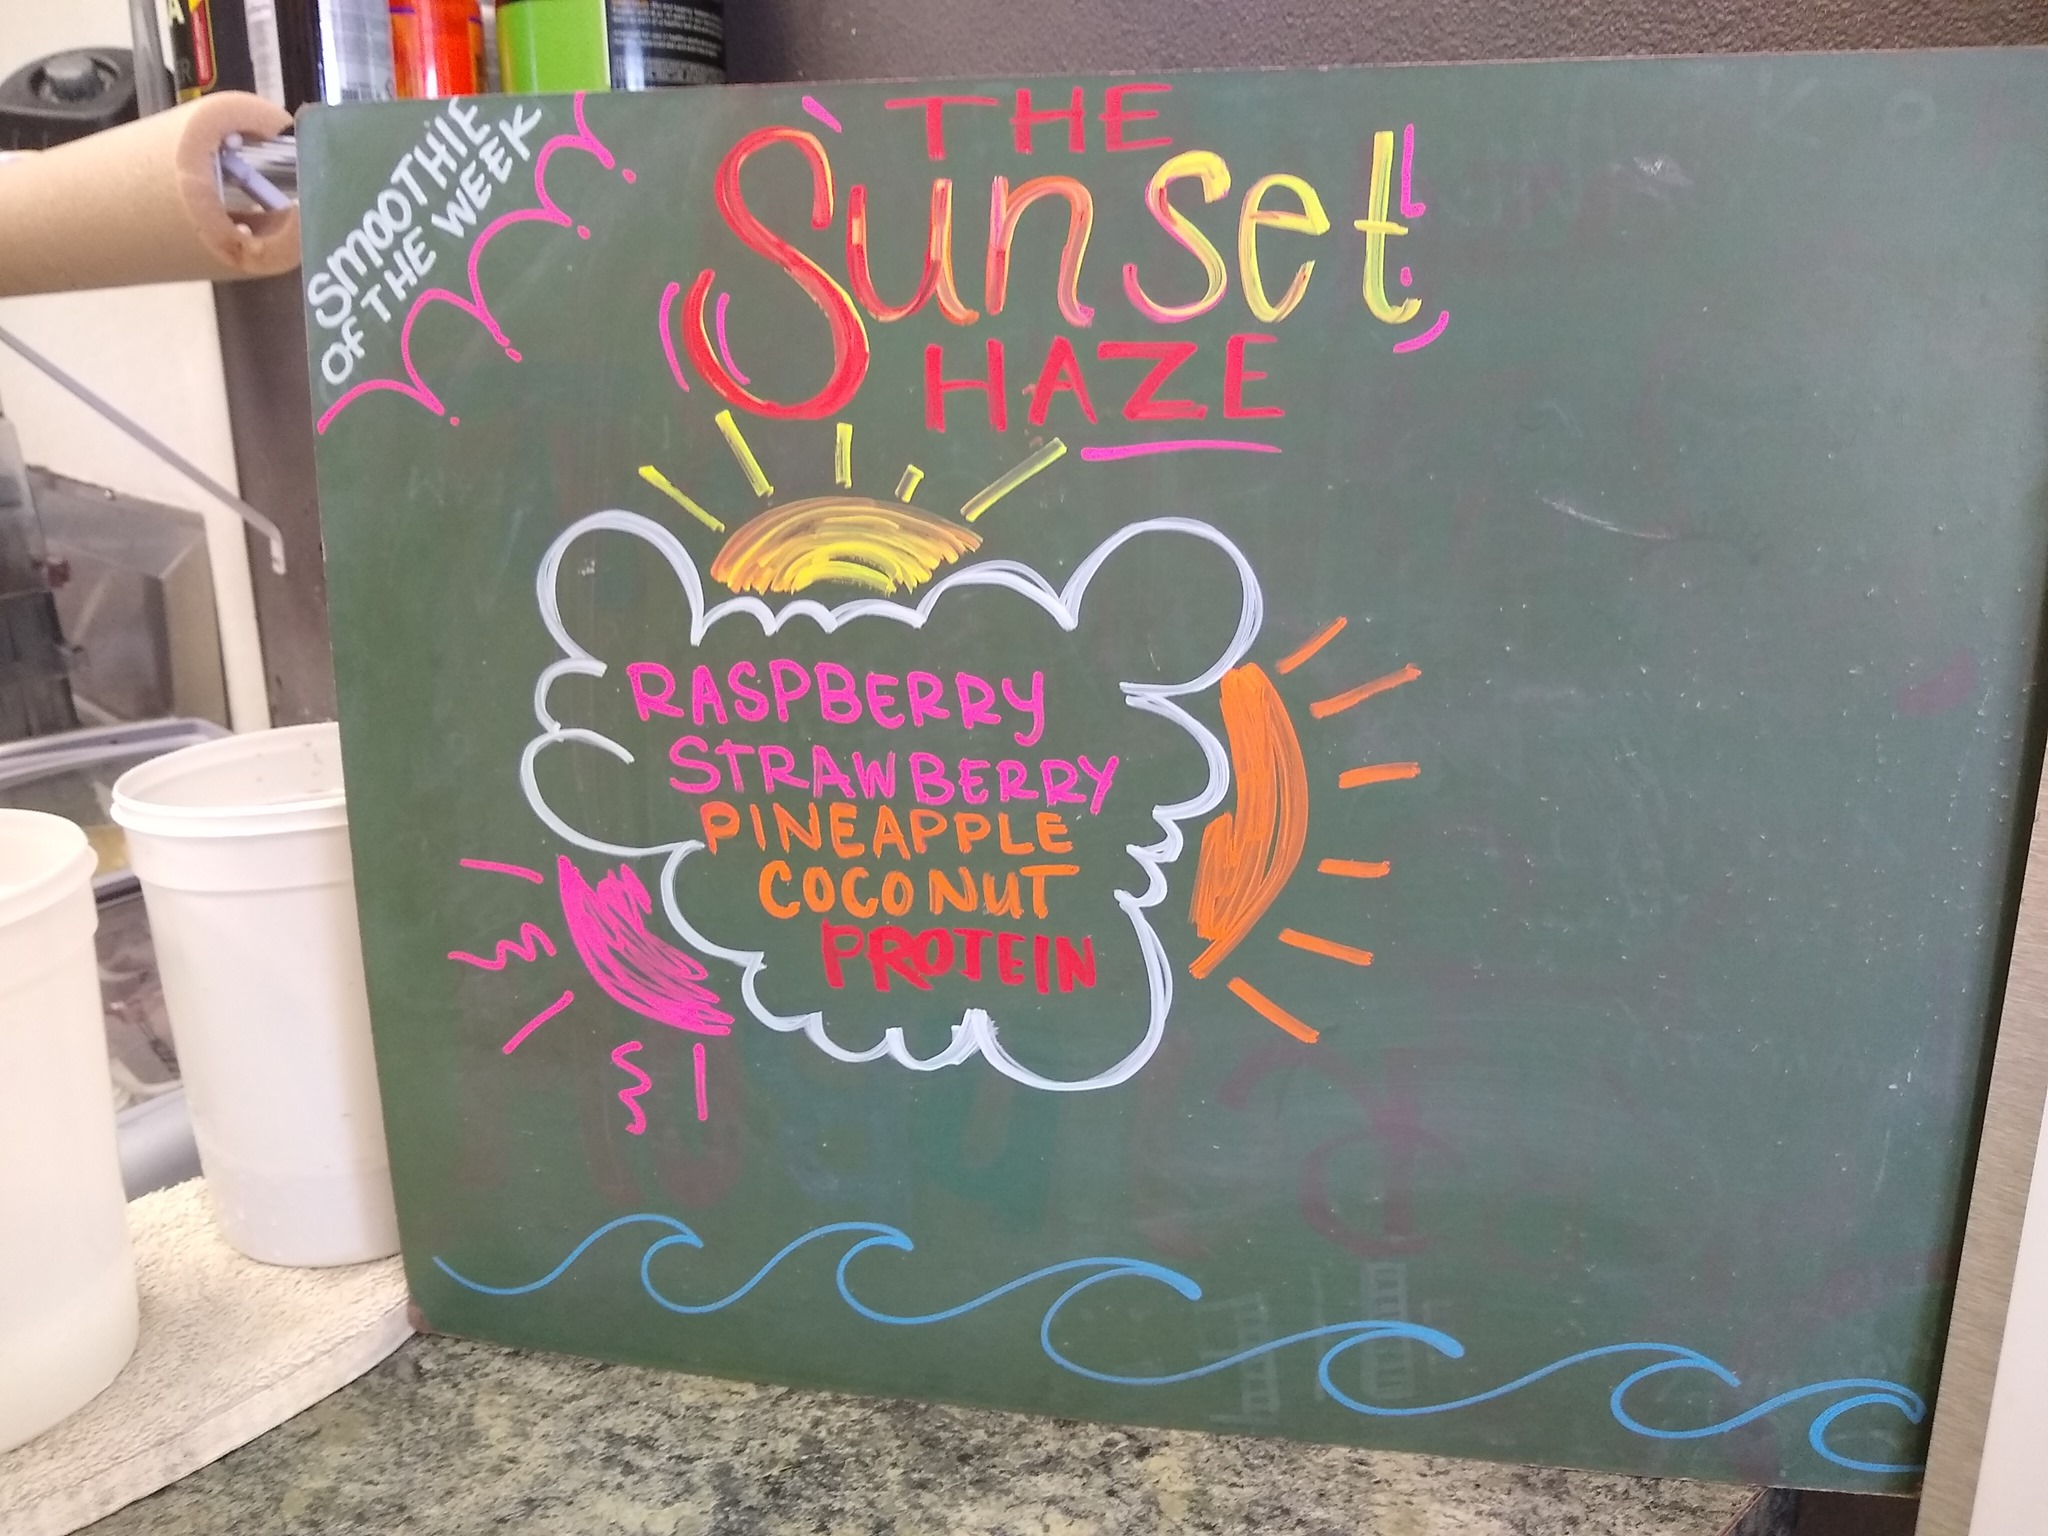 SMOOTHIE
OF THE WEEK
THE
Sunset
HAZE
RASPBERRY
STRAWBERRY
PINEAPPLE
COCONUT
PROTEIN